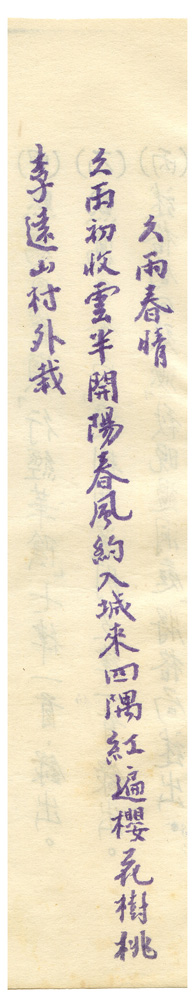 久雨春晴
久雨初收雲半開陽春風約入城來四隅紅遍櫻花樹桃
李遠山村外栽